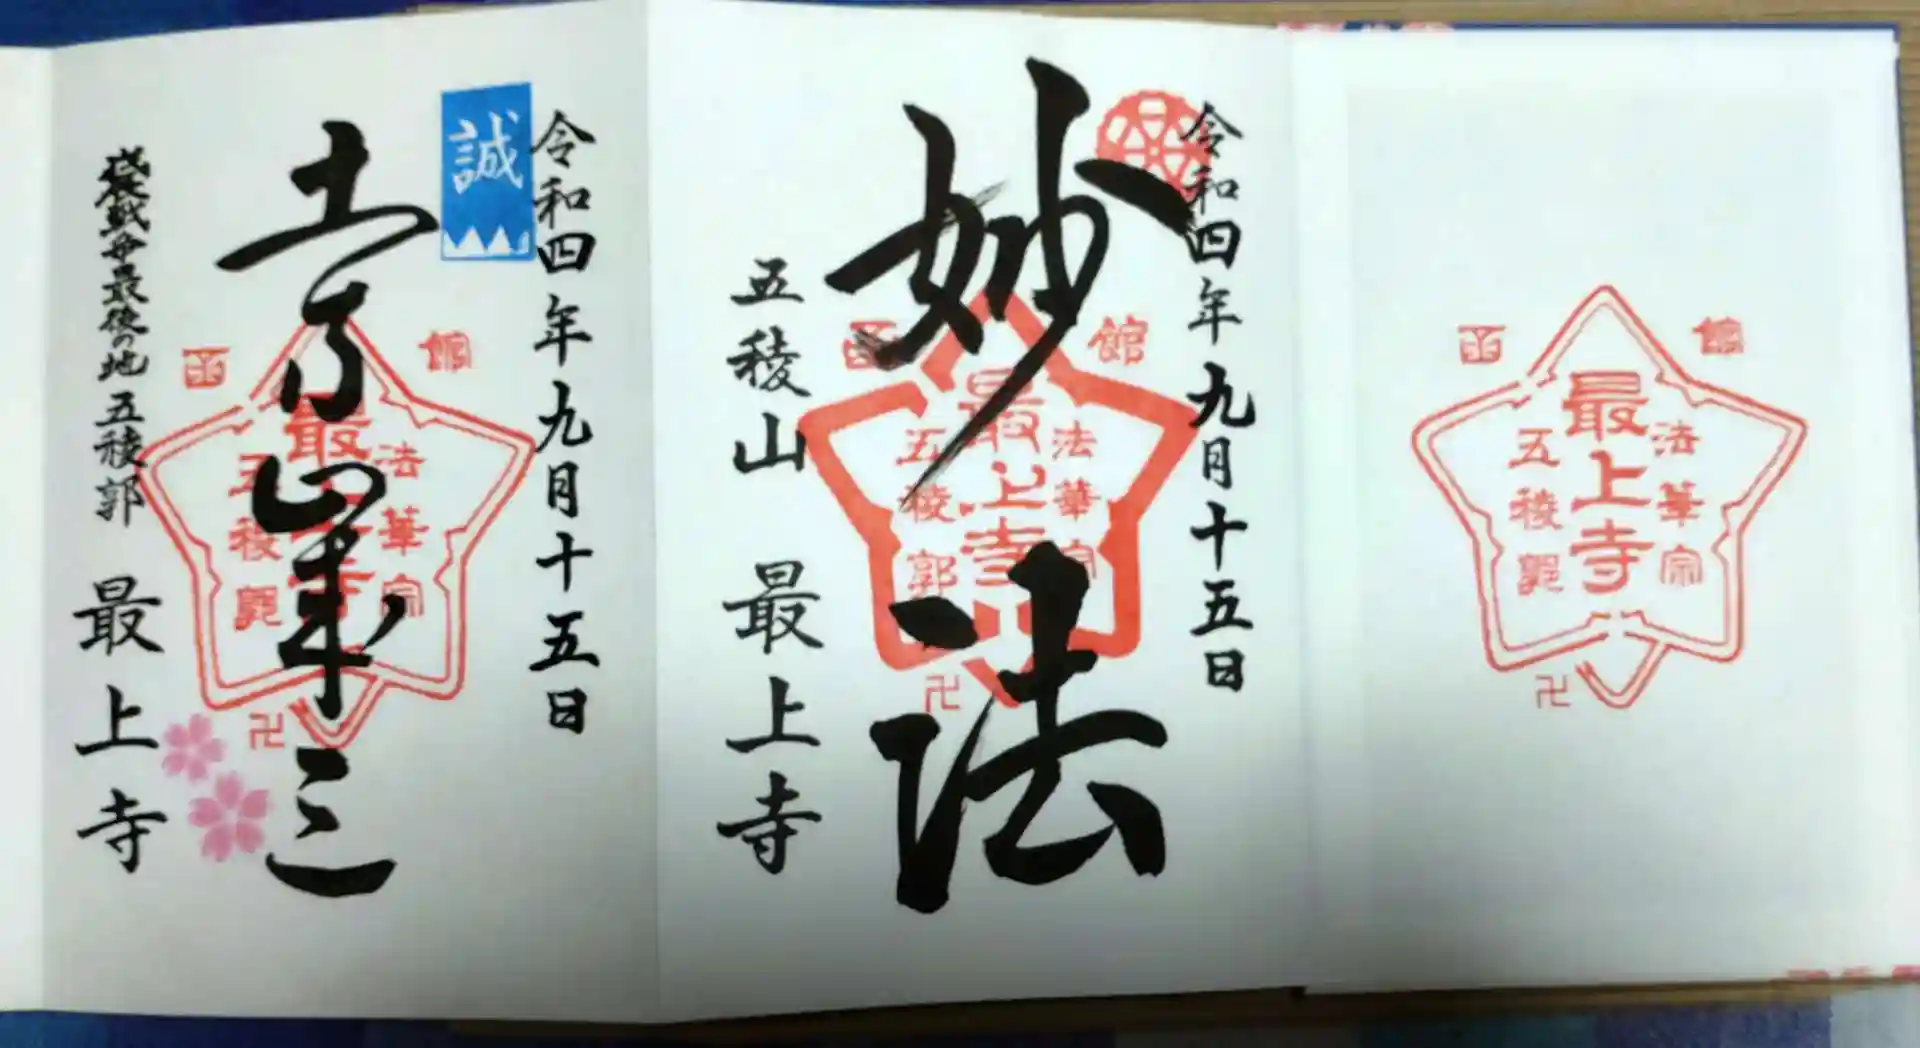 令和四年九月十五日
妙法
五稜山 最上寺
函館
法華宗
最上寺
五稜郭
卍
令和四年九月十五日
誠
土方歳三
戊辰戦争最後の地 五稜郭 最上寺
函館
法華宗
最上寺
五稜郭
卍
函館
法華宗
最上寺
五稜郭
卍